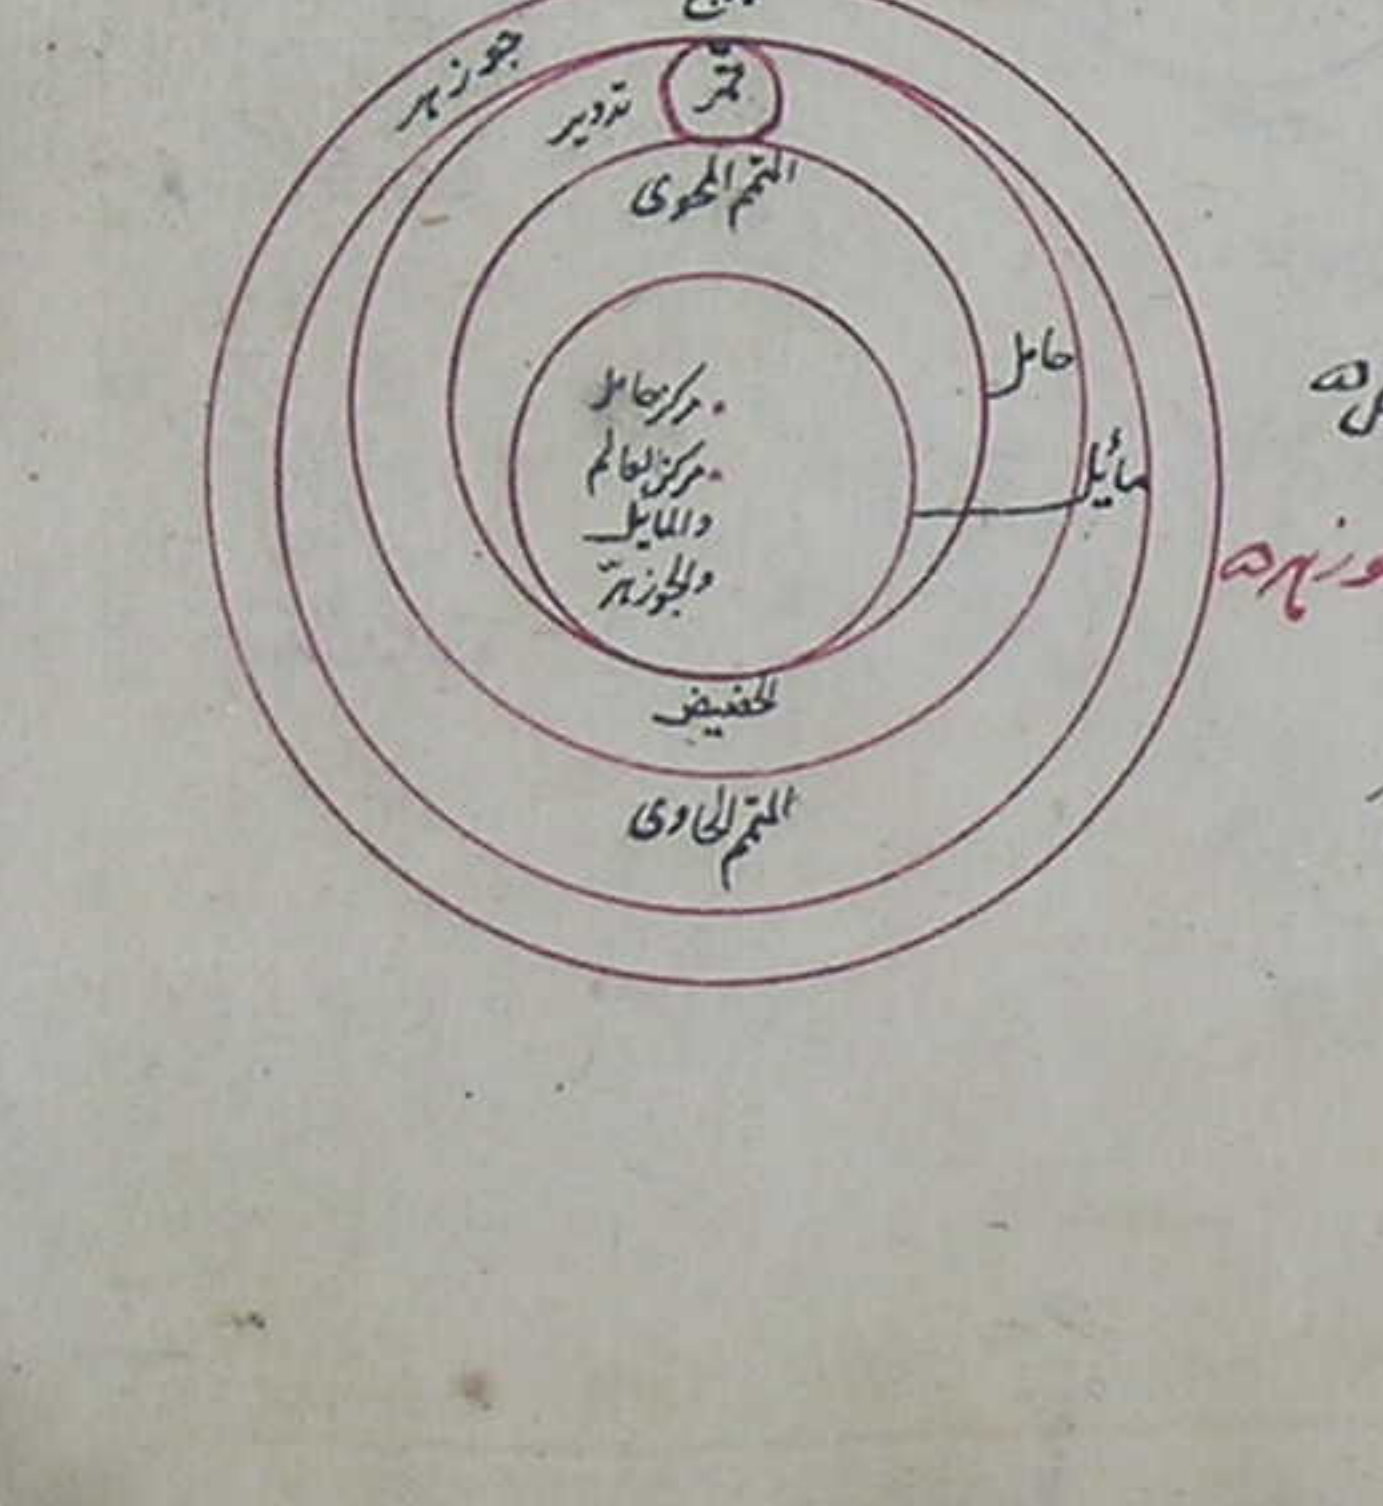 جوزهر
قمر
تدوير
المتمم المحوى
حامل
مركز حامل
مائل
مركز العالم
والمايل
والجوزهر
الحضيض
المتمم الحاوى